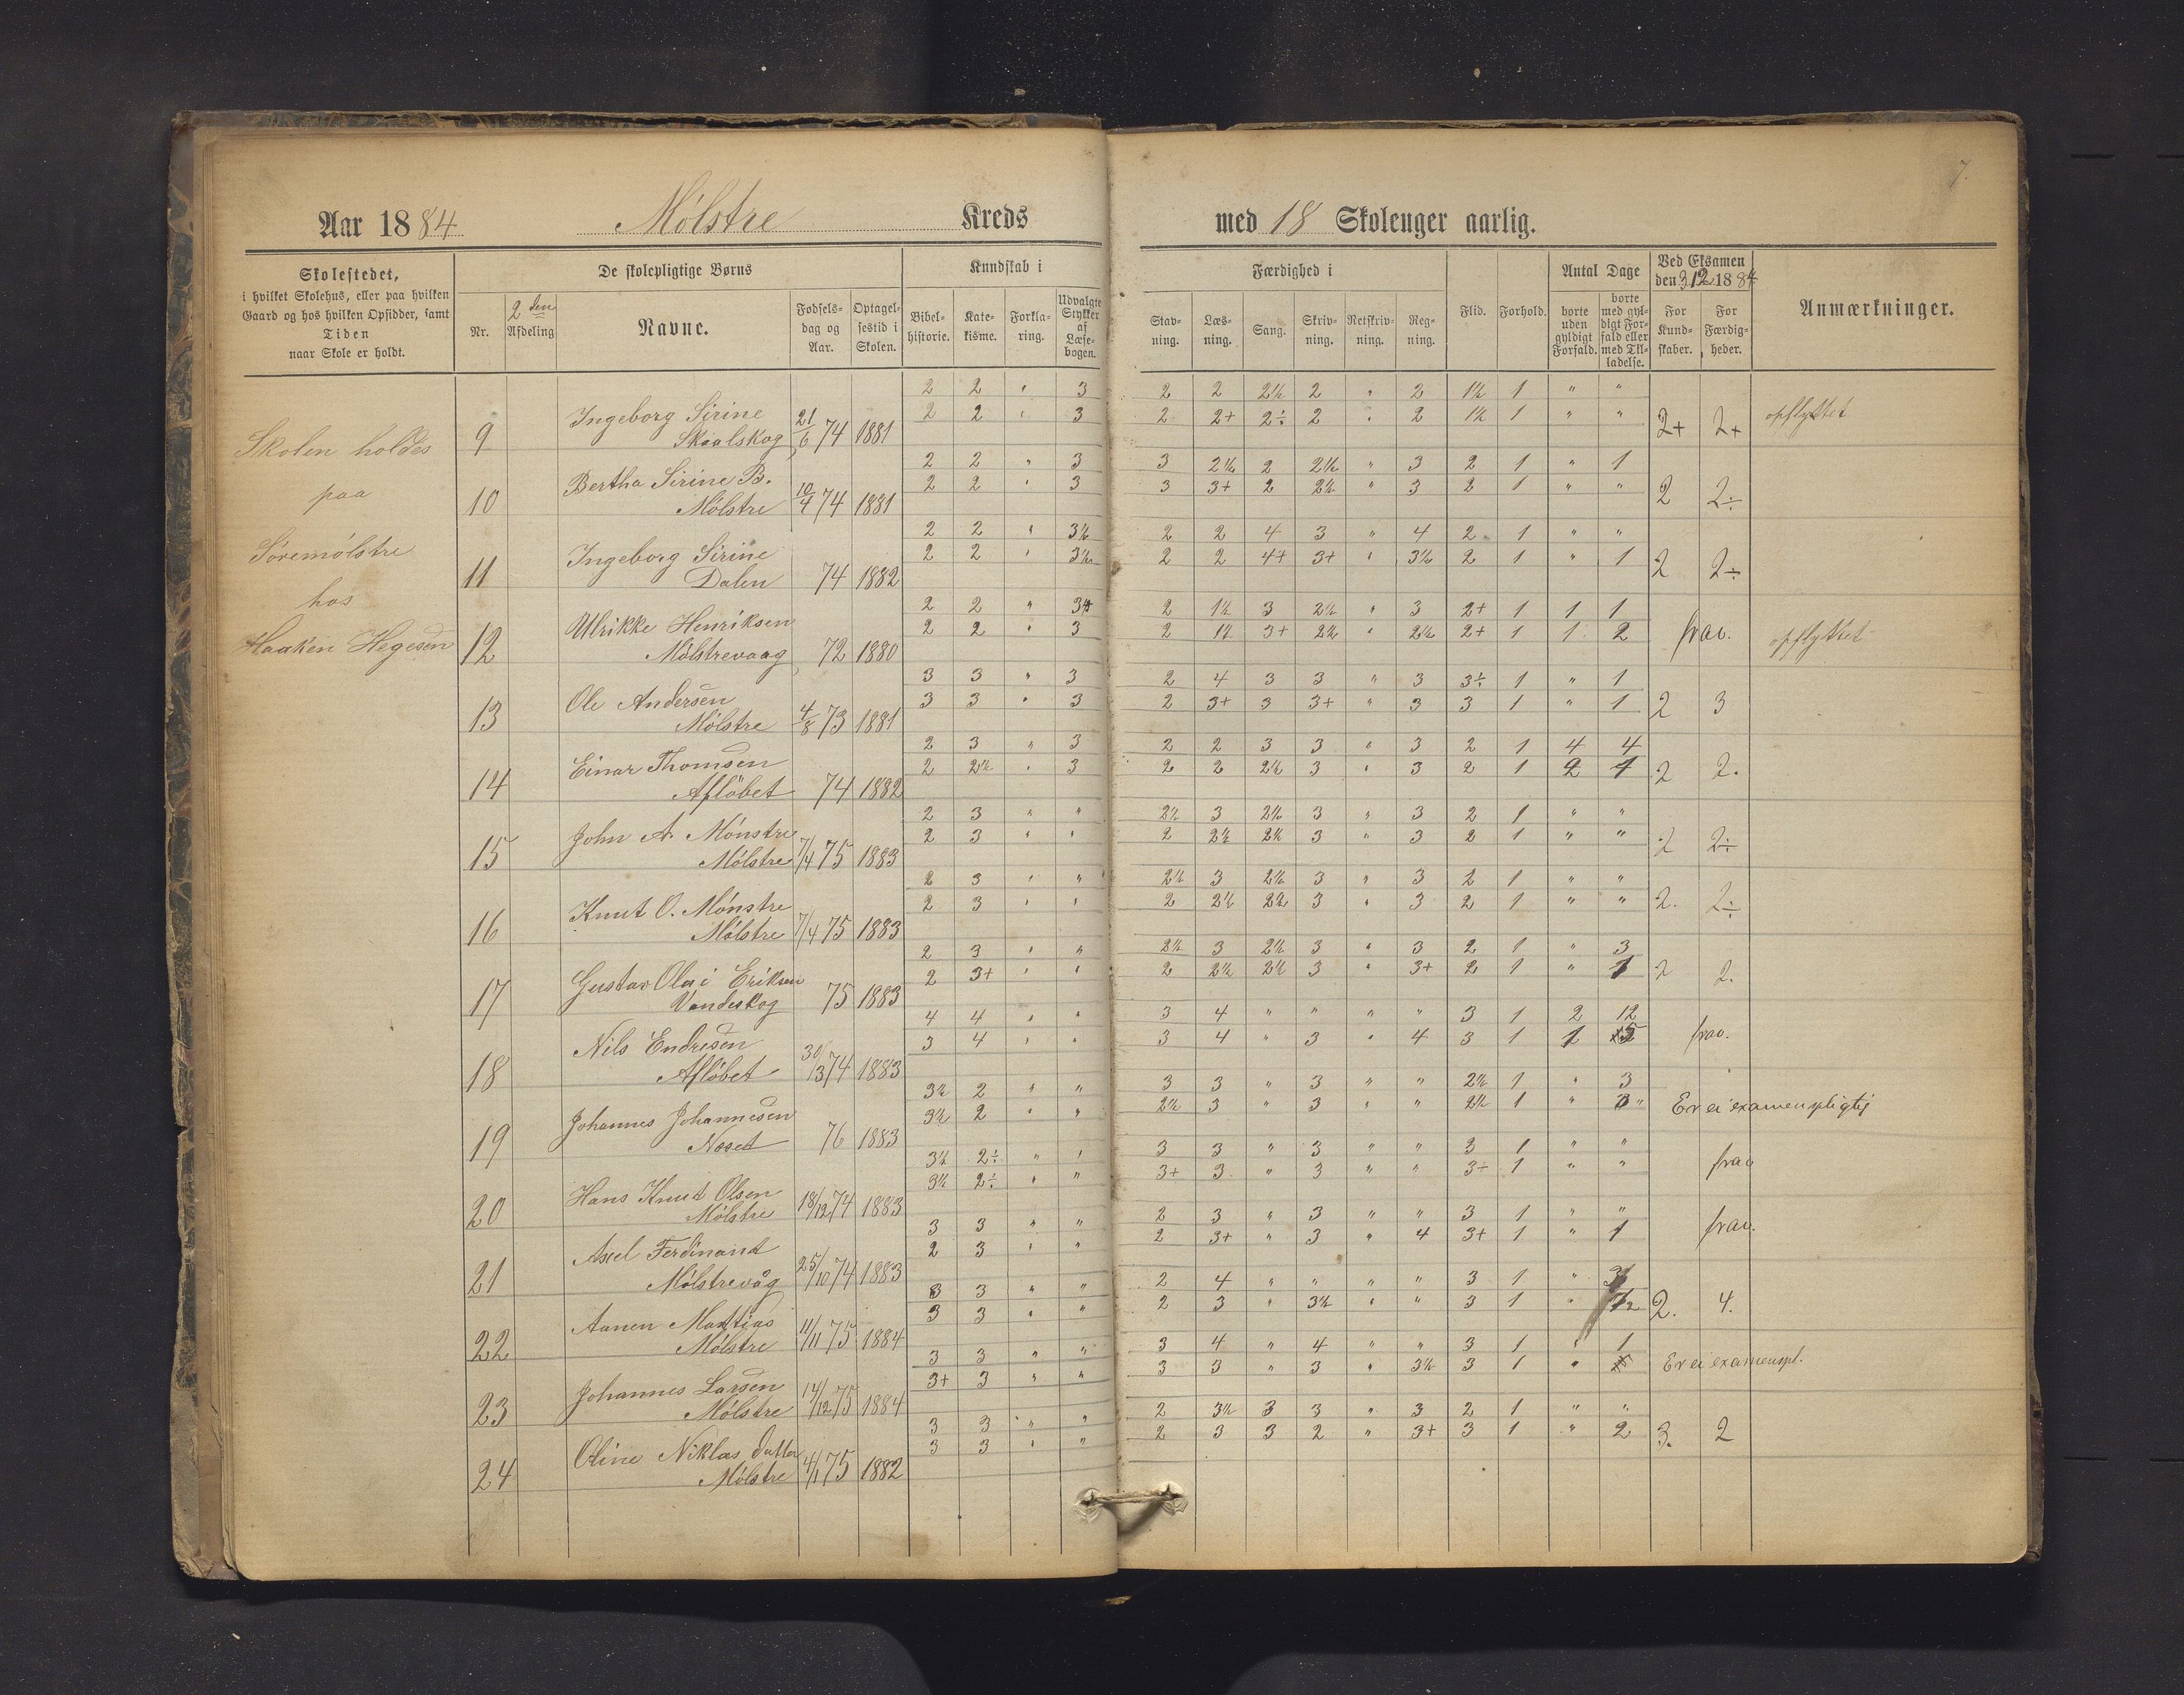 7.
Aar 1884 Mølstre Kreds med 18 Skoleuger aarlig.
Skolestedet,
i hvilket Skolehus, eller paa hvilken
Gaard og hos hvilken Opsidder, samt
Tiden
naar Skole er holdt.
De skolepligtige Børns
Nr.
2den
Afdeling
Navne.
Fødsels-
dag og
Aar.
Optagel-
sestid i
Skolen.
Kundskab i
Bibel-
historie.
Kate-
kisme.
Forkla-
ring.
Udvalgte
Stykker
af
Læse-
bogen.
Færdighed i
Stav-
ning.
Læs-
ning.
Sang.
Skriv-
ning.
Retskriv-
ning.
Reg-
ning.
Flid.
Forhold.
Antal Dage
borte
uden
gyldigt
Forfald.
borte
med gyl-
digt For-
fald eller
med Til-
ladelse.
Ved Eksamen
den 3/12 1884
For
Kund-
skaber.
For
Færdig-
heder.
Anmærkninger.
Skolen holdes
paa
Søremølstre
hos
Haaken Hegesen
2 2 " 3 2 2 2½ 2 " 2 1½ 1 " "
2 2 " 3 2 2+ 2÷ 2 " 2 1½ 1 " " 2+ 2+ opflyttet
9 Ingeborg Sirine
Skaalskog 21/6 74 1881
2 2 " 3 3 2½ 2 2½ " 3 2 1 " 1
2 2 " 3 3 3+ 2 2½ " 3 2 1 " " 2 2÷
10 Bertha Sirine B.
Mølstre 10/4 74 1881
2 2 " 3½ 2 2 4 3 " 4 2 1 " "
2 2 " 3½ 2 2 4+ 3+ " 3½ 2 1 " 1 2 2÷
11 Ingeborg Sirine
Dalen 74 1882
2 2 " 3+ 2 1½ 3 2½ " 3 2+ 1 1 1
2 2 " 3 2 1½ 3+ 2½ " 2½ 2+ 1 1 2 frav. opflyttet
12 Ulrikke Henriksen
Mølstrevaag 72 1880
3 3 " 3 2 4 3 3 " 3 3÷ 1 " 1
3 3 " 3 2 3+ 3 3+ " 3 3 1 " 1 2 3
13 Ole Andersen
Mølstre 4/8 73 1881
2 3 " 3 2 2 3 3 " 3 2 1 4 4
2 2½ " 3 2 2 2½ 3 " 3 2 1 2 1 2 2.
14 Einar Thomsen
Afløbet 74 1882
2 3 " " 2½ 3 2½ 3 " 3 2 1 " "
2 3 " " 2 2½ 2½ 3 " 3 2 1 " " 2 2÷
15 John A. Mønstre
Mølstre 7/4 75 1883
2 3 " " 2½ 3 2½ 3 " 3 2 1 " "
2 3 " " 2 2½ 2½ 3 " 3 2 1 " " 2. 2÷
16 Knut O. Mønstre
Mølstre 7/4 75 1883
2 3 " " 2½ 3 2½ 3 " 3 2 1 " 3
2 3+ " " 2 2½ 2½ 3 " 3+ 2 1 " 1 2 2.
17 Gustav Olai Eriksen
Vandeskog 75 1883
4 4 " " 3 4 " " " " 3 1 2 12
3 4 " " 3 4 " 3 " 4 3 1 1 frav.
18 Nils Endresen
Afløbet 30/3 74 1883
3½ 2 " " 3 3 " 3 " " 2½ 1 " 3
3½ 2 " " 2½ 3 " 3 " " 2½ 1 " Er ei examenspligtig
19 Johannes Johannesen
Næset 76 1883
3½ 2÷ " " 3 3 " 3 " " 3 1 " "
3½ 2÷ " " 3+ 3 " 3 " " 3÷ 1 " " frav
20 Hans Knut Olsen
Mølstre 18/12 74 1883
3 3 " " 2 3 " 3 " " 3 1 " "
2 3 " " 2 3+ " 3 " 4 3+ 1 " 1 frav.
21 Axel Ferdinant
Mølstrevåg 25/10 74 1883
3 3 " " 2 4 " " " " 3 1 "
3 3 " " 2 3 " 3½ " " 3 1 " 2. 4.
22 Aanen Mattias
Mølstre 11/11 75 1884
3 3 " " 3 4 " 4 " " 3 1 " 1
3+ 3 " " 3 3 " 3 " 3½ 3 1 " Er ei examenspl.
23 Johannes Larsen
Mølstre 14/12 75 1884
3 3 " " 2 3½ 3 3 " 3 2 1 " "
3 3 " " 2 3 3 2 " 3+ 3 1 " 2 3. 2
24 Oline Niklas datter
Mølstre 4/1 75 1882